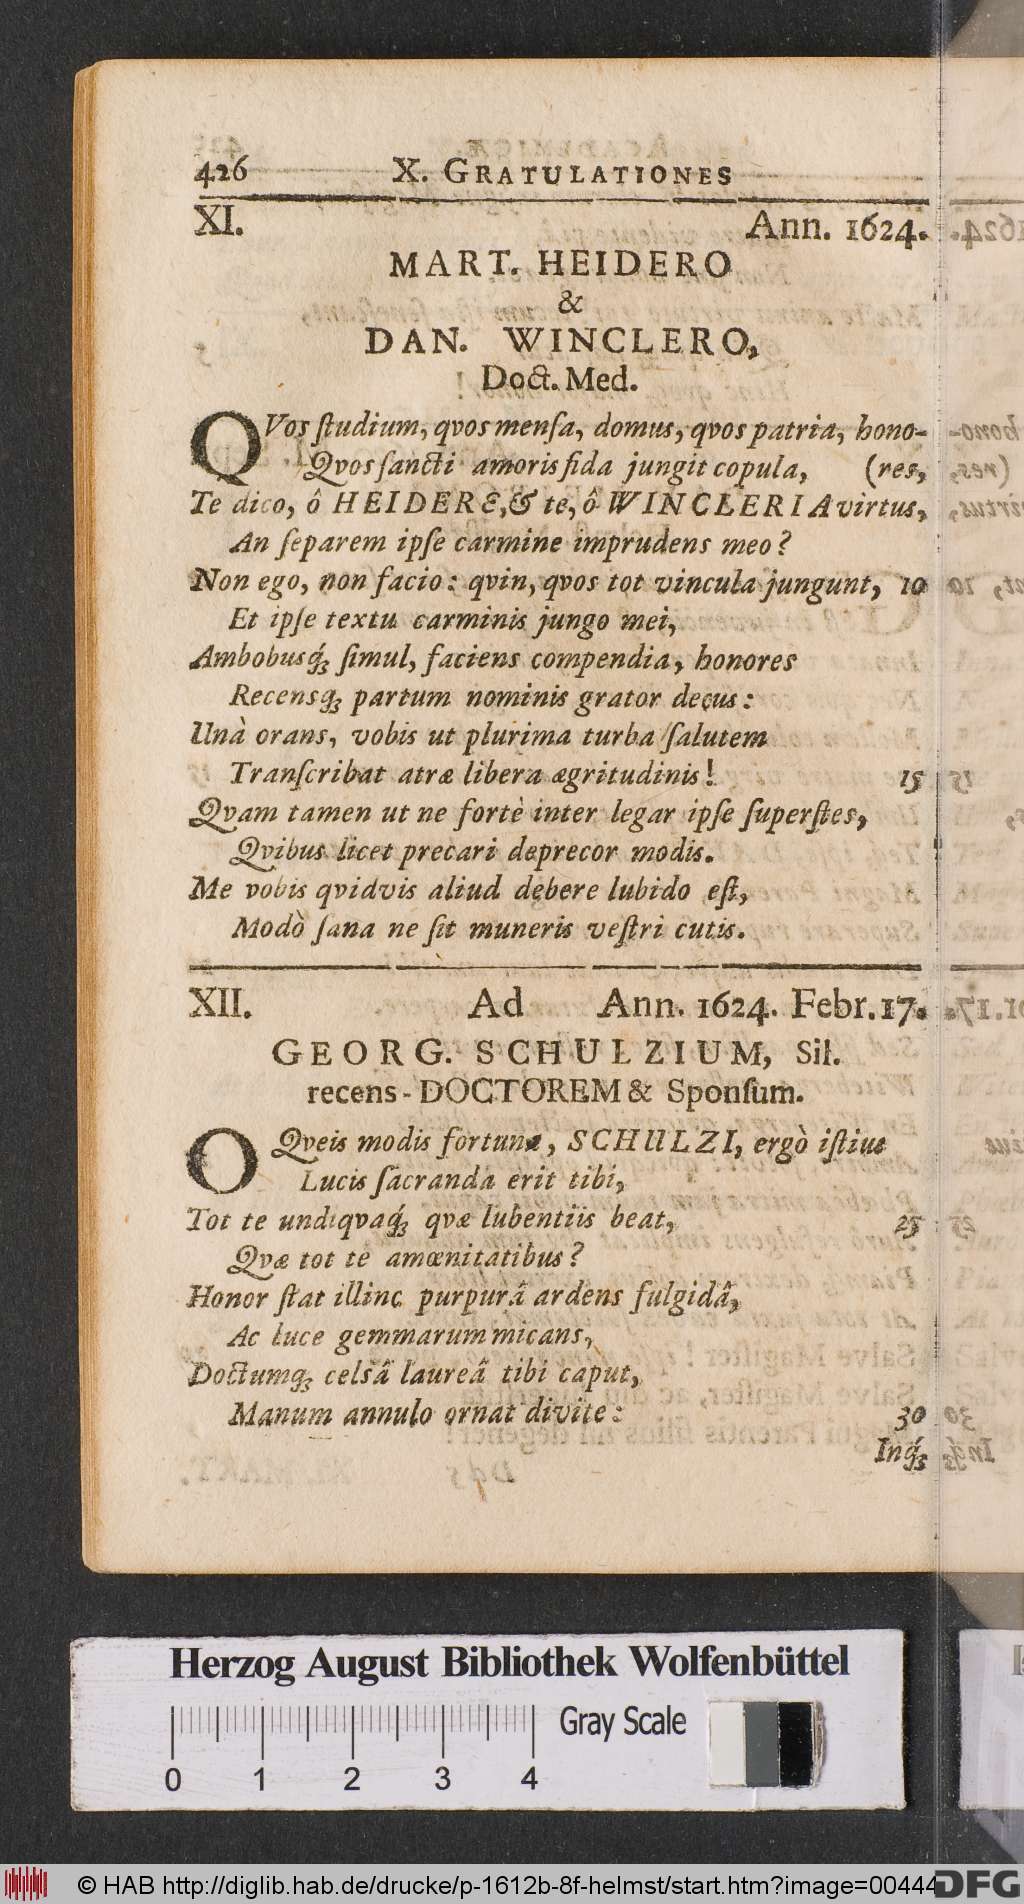 426 X. GRATULATIONES
XI. Ann. 1624.
MART. HEIDERO
&
DAN. WINCLERO,
Doct. Med.
QVos ſtudium, qvos menſa, domus, qvos patria, hono-
Qvos ſancti amoris fida jungit copula, (res,
Te dico, ô HEIDERE, & te, ô WINCLERIA virtus,
An ſeparem ipſe carmine imprudens meo?
Non ego, non facio: qvin, qvos tot vincula jungunt, 10
Et ipſe textu carminis jungo mei,
Ambobusq́; ſimul, faciens compendia, honores
Recensq; partum nominis grator decus:
Unà orans, vobis ut plurima turba ſalutem
Tranſcribat atræ libera ægritudinis! 15
Qvam tamen ut ne fortè inter legar ipſe ſuperſtes,
Qvibus licet precari deprecor modis.
Me vobis qvidvis aliud debere lubido eſt,
Modò ſana ne ſit muneris veſtri cutis.
XII. Ad Ann. 1624. Febr. 17.
GEORG. SCHULZIUM, Sil.
recens-DOCTOREM & Sponſum.
O Qveis modis fortunæ, SCHULZI, ergò iſtius
Lucis ſacranda erit tibi,
Tot te undiqvaq́; qvæ lubentiis beat, 25
Qvæ tot te amœnitatibus?
Honor ſtat illinc purpurâ ardens fulgidâ,
Ac luce gemmarum micans,
Doctumq; celsâ laureâ tibi caput,
Manum annulo ornat divite: 30
Inq́;
Herzog August Bibliothek Wolfenbüttel
Gray Scale
0 1 2 3 4
© HAB http://diglib.hab.de/drucke/p-1612b-8f-helmst/start.htm?image=00444
DFG